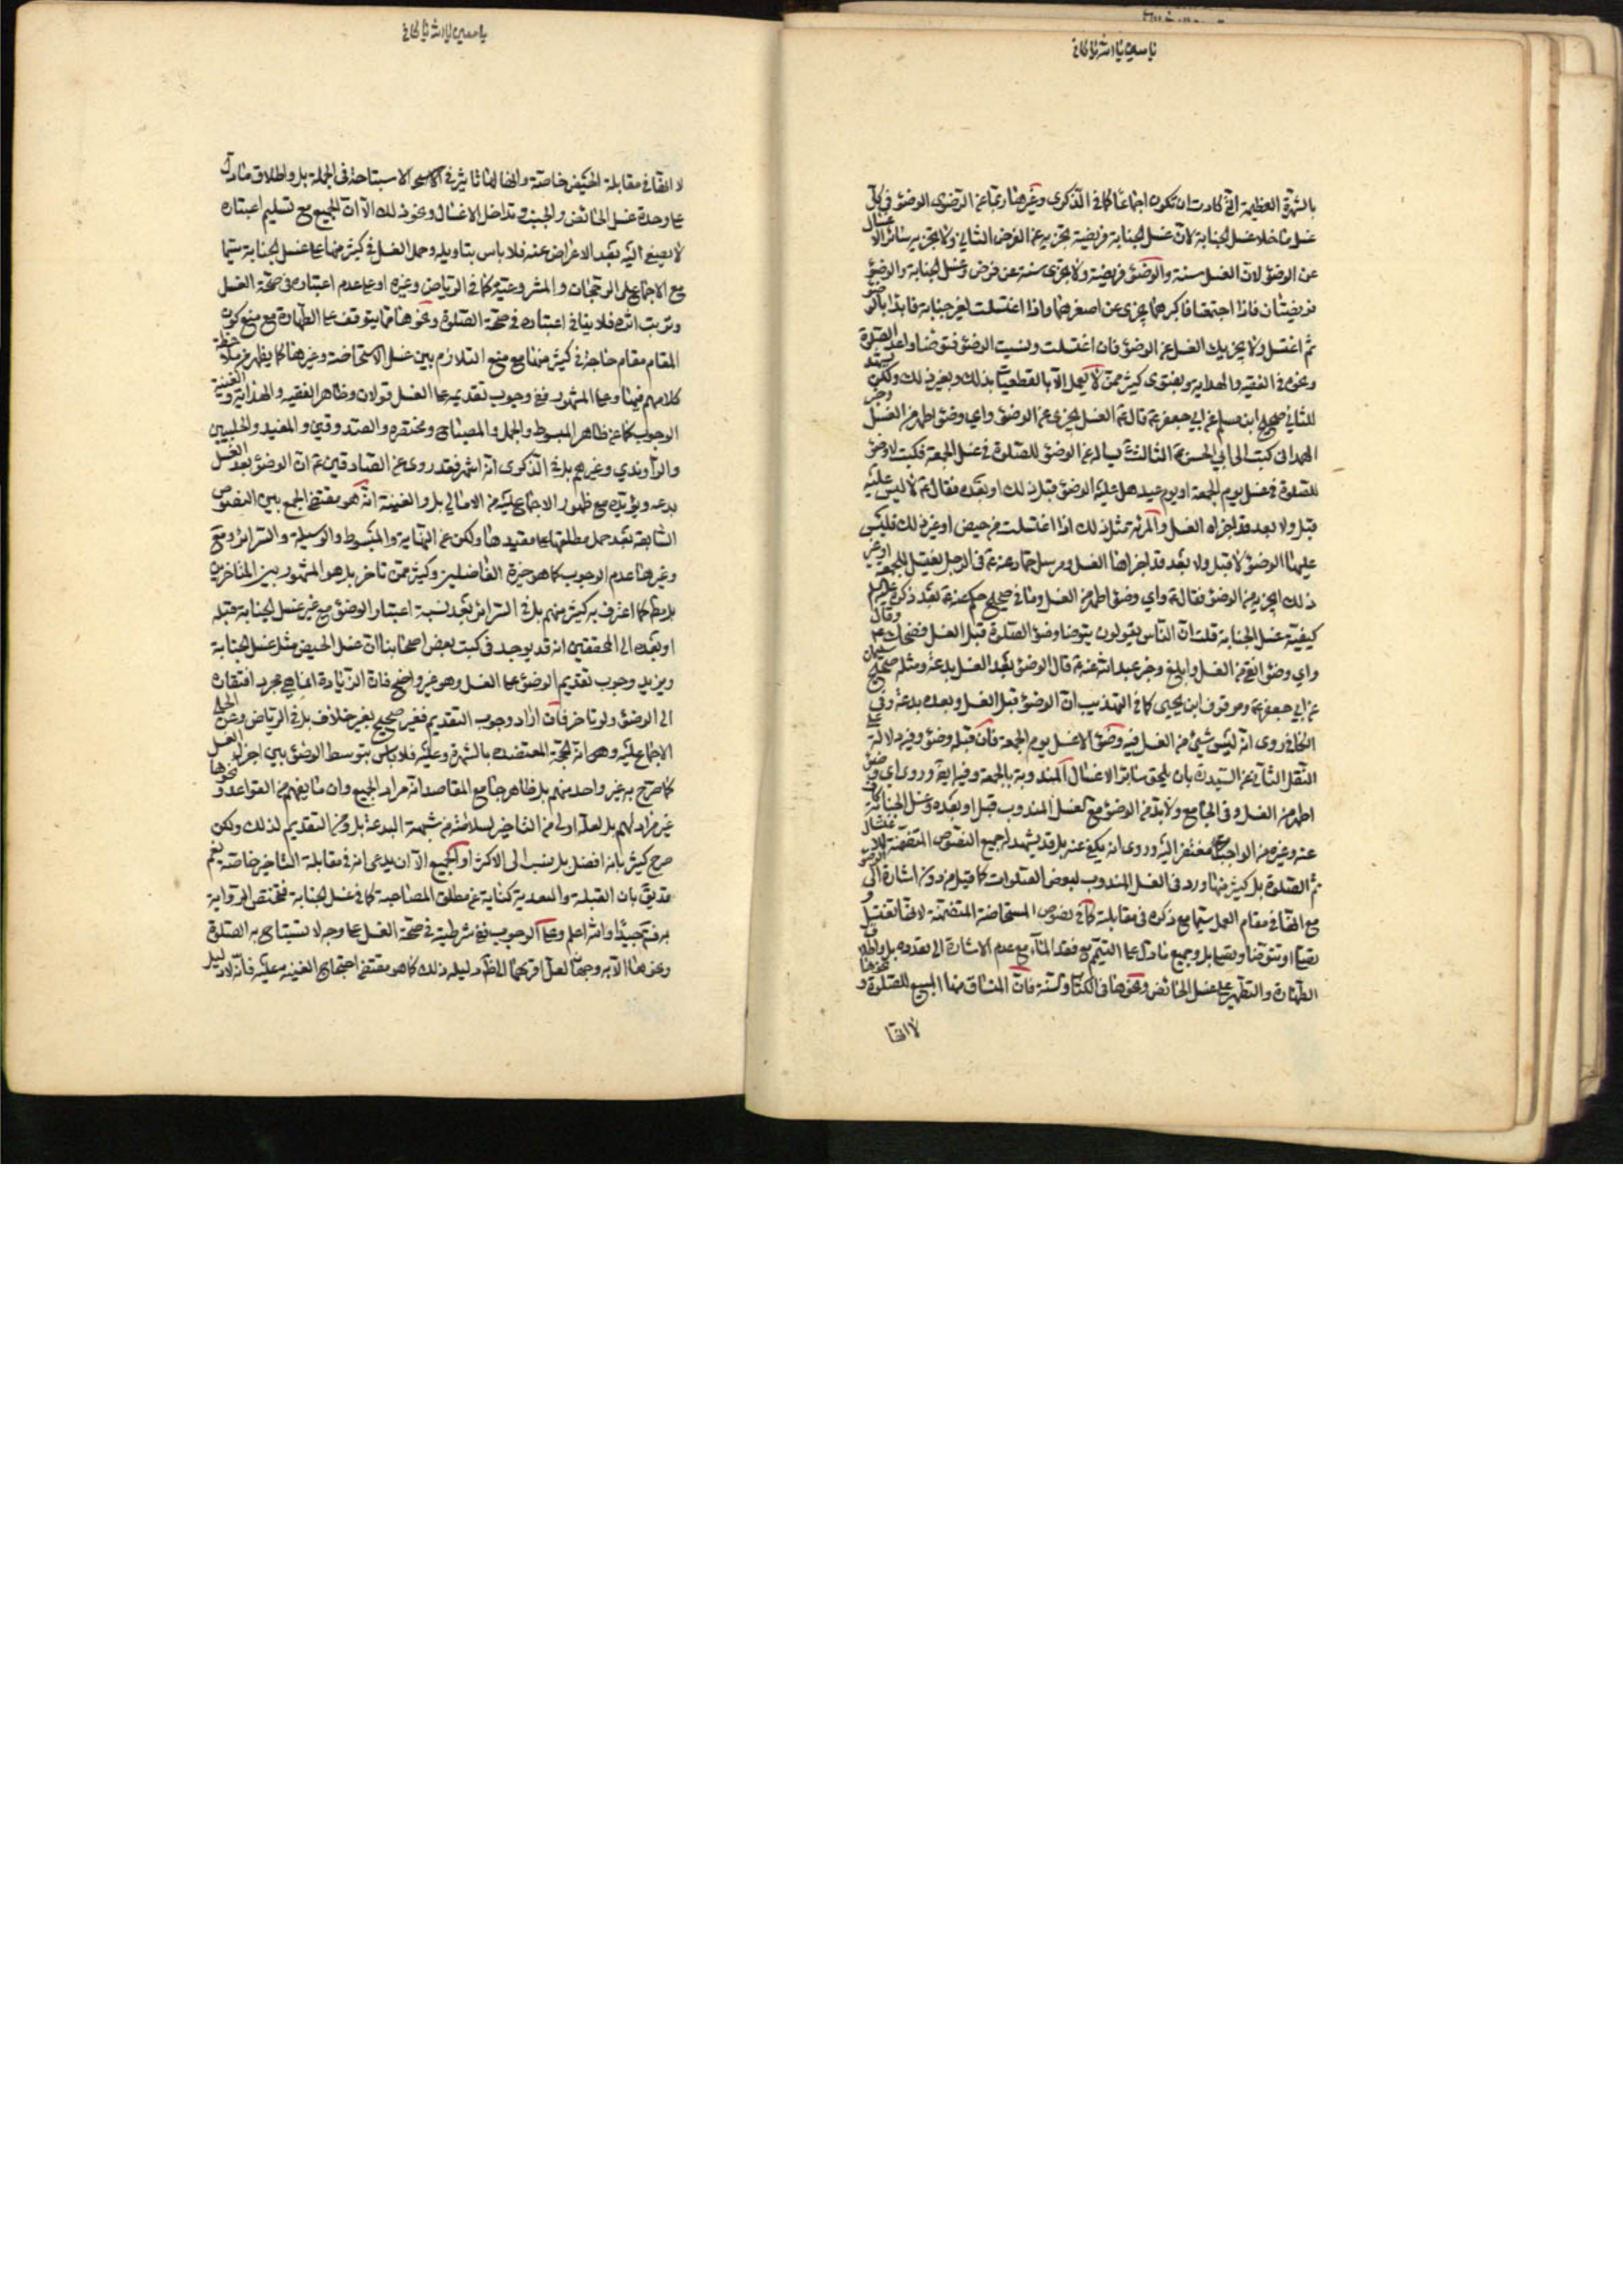 بالشهرة العظيمة التي كادت ان تكون اجماعا كما في الذكرى وغيرها ربما عن الرضوي الوضوء في كل
غسل ما خلا غسل الجنابة لان غسل الجنابة فريضة تجزيه عن الفرض الثاني ولا يجزيه سائر الاغسال
عن الوضوء لان الغسل سنة والوضوء فريضة ولا يجزي سنة عن فرض وغسل الجنابة والوضوء
فريضتان فاذا اجتمعا فاكبرهما يجزي عن اصغرهما واذا اغتسلت لغير جنابة فابدا بالوضوء
ثم اغتسل ولا يجزيك الغسل عن الوضوء فان اغتسلت ونسيت الوضوء فتوضا واعد الصلوة
ونحوه في الفقيه والهداية وبفتوى كثير ممن لا يعمل الا بالقطعيات بذلك وبغير ذلك ولكن يشهد
للثاني صحيح ابن مسلم عن ابي جعفر ع قال الغسل يجزي عن الوضوء واي وضوء اطهر من الغسل وخبر
الهمداني كتبت الى ابي الحسن الثالث ع يساله عن الوضوء للصلوة في غسل الجمعة فكتب لا وضوء
للصلوة في غسل يوم الجمعة او يوم عيد هل عليه الوضوء قبل ذلك او بعده فقال ع لا ليس عليه
قبل ولا بعد قد اجزاه الغسل والمرئة مثل ذلك اذا اغتسلت من حيض او غير ذلك فليس
عليها الوضوء لا قبل ولا بعد قد اجزاها الغسل ومرسل حماد عنه ع في الرجل يغتسل للجمعة او غير
ذلك ايجزيه من الوضوء فقال ع واي وضوء اطهر من الغسل وما في صحيح حكم عنه ع بعد ذكره عليه السلم
كيفية غسل الجنابة قلت ان الناس يقولون يتوضا وضوء الصلوة قبل الغسل فضحك ع وقال
واي وضوء انقى من الغسل وابلغ وخبر عبد الله عنه ع قال الوضوء بعد الغسل بدعة ومثله صحيح سليمان
عن ابي جعفر ع وموقوف ابن يحيى كما في التهذيب ان الوضوء قبل الغسل وبعده بدعة وفي
الكافي روى انه ليس شيئ من الغسل فيه وضوء الا غسل يوم الجمعة فان قبله وضوء وفيه دلالة على
النقل الثاني عن السيد بان يلحق سائر الاغسال المندوبة بالجمعة وفيه ايضا وروى اي وضوء
اطهر من الغسل وفي الجامع ولا بد من الوضوء مع كغسل المندوب قبل او بعده وغسل الجنابة كاف
عنه وغيره من الواجبات مفتقر اليه وروى انه يكفي عنه بل قد يشهد له جميع النصوص المتضمنة للاغتسال
ثم الصلوة بل كثير منها ورد في الغسل المندوب لبعض الصلوات كما قيل من دون اشارة الى الوضوء
مع انها في مقام العمل سيما مع ذكره في مقابلة كما في نصوص المستحاضة المتضمنة لانها تغتسل و
تصلي او تتوضا وتصلي بل وجميع ما دل على التيمم مع فقد الماء مع عدم الاشارة الى تعدده بل واطلاق
الطهارة والتطهير على غسل الحائض ونحوها في الكتاب والسنة فان المنساق منها المبيح للصلوة ونحوها
لا انها
لا انها في مقابلة الحيض خاصة وانها لها تاثير في الاستباحة في الجملة بل واطلاق ما دل
على وحدة غسل الحائض والجنب وتداخل الاغسال ونحو ذلك الا ان الجميع مع تسليم اعتباره
لا يصغى اليه بعد الاعراض عنه فلا باس بتاويله وحمل الغسل في كثير منها على غسل الجنابة سيما
مع الاجماع على الرجحان والمشروعية كما في الرياض وغيره او على عدم اعتباره في صحة الغسل
وترتب اثره فلا ينافي اعتباره في صحة الصلوة ونحوها مما يتوقف على الطهارة مع منع كون
المقام مقام حاجة في كثير منها مع منع التلازم بين غسل الاستحاضة وغيرها كما يظهر من ملاحظة
كلامهم فيها وعلى المشهور ففي وجوب تقديمه على الغسل قولان وظاهر الفقيه والهداية والغنية
الوجوب كما عن ظاهر المبسوط والجمل والمصباح ومختصره والصدوقين والمفيد والحلبيين
والراوندي وغيرهم بل في الذكرى انه اشهر فقد روى عن الصادقين ع ان الوضوء بعد الغسل
بدعه ويؤيده مع ظهور الاجماع عليه من الامالي بل والغنية انه هو مقتضى الجمع بين النصوص
السابقة بعد حمل مطلقها على مقيدها ولكن عن النهاية والمبسوط والوسيلة والسرائر ومع
وغيرها عدم الوجوب كما هو خيرة الفاضلين وكثير ممن تاخر بل هو المشهور بين المتاخرين
بل مط كما اعترف به كثير منهم بل في السرائر بعد نسبة اعتبار الوضوء مع غير غسل الجنابة قبله
او بعده الى المحققين انه قد يوجد في كتب بعض اصحابنا ان غسل الحيض مثل غسل الجنابة
ويزيد وجوب تقديم الوضوء على الغسل وهو غير واضح فان الزيادة انما هي مجرد افتقاره
الى الوضوء ولو تاخر فان اراد وجوب التقديم فغير صحيح بغير خلاف بل في الرياض وعن الحلي
الاجماع عليه وهو انه الحجة المعتضده بالشهرة وعليه فلا باس بتوسط الوضوء بين اجزاء الغسل
كما صرح به غير واحد منهم بل ظاهر جامع المقاصد انه مراد الجميع وان ما يفهم من القواعد ونحوها
غير مراد لهم بل لعله اولى من التاخير لسلامته من شبهة البدعة بل ومن التقديم لذلك ولكن
صرح كثير بانه افضل بل ينسب الى الاكثر او الجميع الا ان يدعى انه في مقابلة التاخير خاصة نعم
قد يق بان القبلية والبعدية كناية عن مطلق المصاحبة كما في غسل الجنابة فتختص الرواية
به فتم جيدا والله اعلم وعلى الوجوب ففي شرطيته في صحة الغسل على وجه لا يستباح به الصلوة
ونحوها الا به وجهان لعل اقربهما الى ظاهر دليله ذلك كما هو مقتضى احتجاج الغنيه عليه فانه لا دليل